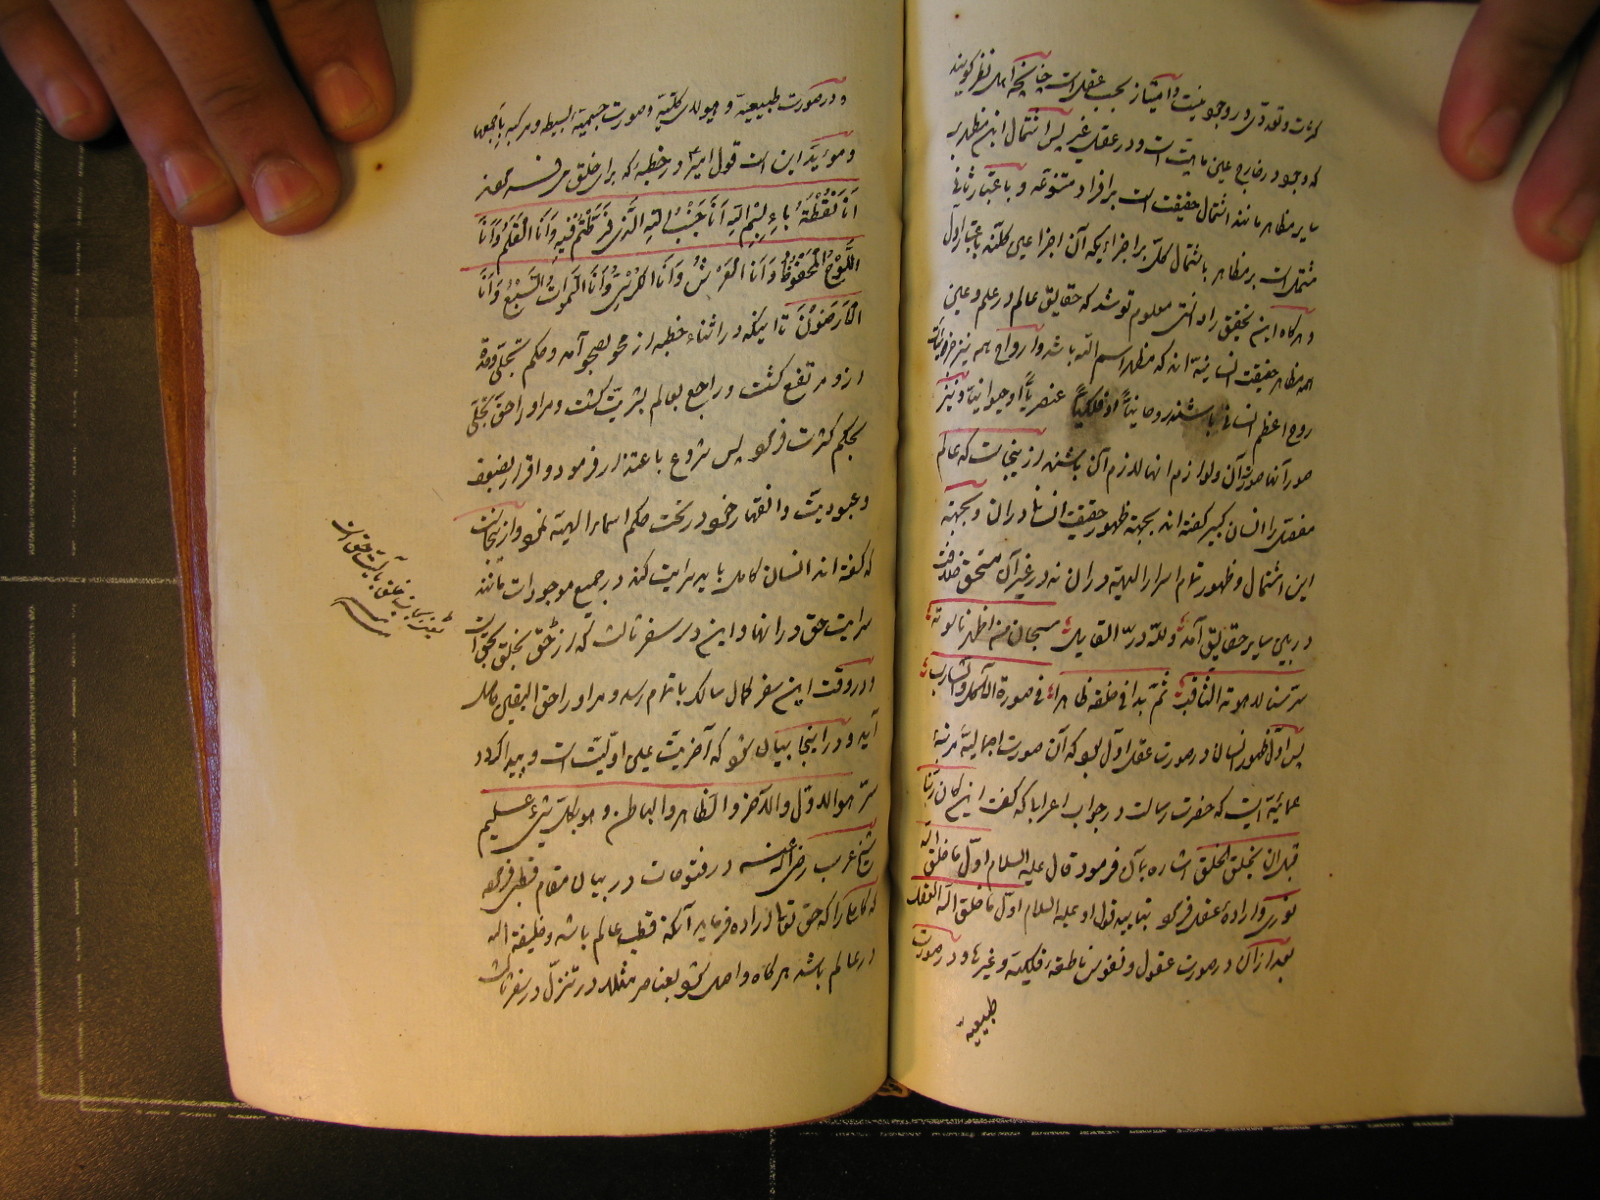 کثرت و تعددی در وجود نیست و امتیاز بحسب عقل است چنانچه اهل نظر گویند
که وجود در خارج عین ماهیت است و در عقل غیر پس اشتمال این مظهر بر
سایر مظاهر مانند اشتمال حقیقت است بر افراد متنوعه و باعتبار ثانی
مشتمل است بر مظاهر باشتمال کل بر اجزائیکه آن اجزا عین کلند باعتبار اول
و هرگاه این تحقیق را دانستی معلوم تو شد که حقایق عالم در علم و عین
همه مظاهر حقیقت انسانیه اند که مظهر اسم الله باشد و ارواح همه نیز جزئیات
روح اعظم انسانی باشند روحانیاً او فلکیاً عنصریاً او حیوانیاً و نیز
صور آنها صورت آن و لوازم آنها لازم آن باشند از ینجاست که عالم
مفصل را انسان کبیر گفته اند بجهة ظهور حقیقت انسان در ان و بجهة
این اشتمال و ظهور تمام اسرار الهیه در ان نه در غیر آن مستحق خلافت
در بین سایر حقایق آمد و لله در القایل سبحان من اظهر ناسوته
سر سنا لاهوته الثاقب ثم بدا فی خلقه ظاهرا فی صورة الآکل و الشارب
پس اول ظهور انسان در صورت عقل اول بود که آن صورت اجمالیه مرتبهٔ
عمائیه است که حضرت رسالت در جواب اعرابی که گفت این کان ربنا
قبل ان یخلق الخلق اشاره بآن فرمود قال علیه السلام اول ما خلق الله
نوری و ارادهٔ عقل فرمود بتأیید قول او علیه السلام اول ما خلق الله العقل
بعد از آن در صورت عقول و نفوس ناطقه فلکیه و غیرها و در صورت
طبیعیه
و در صورت طبیعیة و هیولای کلیة و صورت جسمیة البسیطه و مرکبه باجمعها
و مؤید این است قول امیر در خطبه که برای خلق
اَنَا نُقْطَةُ بَاءِ بِسْمِ اللهِ اَنَا جَنْبُ اللهِ الَّذِی فَرَّطْتُمْ فِیهِ وَاَنَا الْقَلَمُ وَاَنَا
اللَّوْحُ الْمَحْفُوظُ وَاَنَا الْعَرْشُ وَاَنَا الْکُرْسِیُّ وَاَنَا السَّمٰوَاتُ السَّبْعُ وَاَنَا
الْاَرَضُونَ تا اینکه در اثناء خطبه از محو بصحو آمد و حکم تجلی وحدة
از و مرتفع گشت و راجع بعالم بشریت گشت و مر او را حق تجلی
بحکم کثرت فرمود پس شروع باعتذار فرمود و اقرار بضعف
و عبودیت و انقهار خود در تحت حکم اسماء الهیة نمود و از ینجاست
که گفته اند انسان کامل باید سرایت کند در جمیع موجودات مانند
سرایت حق در انها و این در سفر ثالث که از حق بخلق بحق است
و در وقت این سفر کمال سالک باتمام رسد و مر او را حق الیقین حاصل
آید و در اینجا بیان شود که آخریت عین اولیت است و پیدا گردد
سر هو الاول و الآخر و الظاهر و الباطن و هو بکل شیء علیم
شیخ عرب رضی الله عنه در فتوحات در بیان مقام قطبی فرمود
که کاملی را که حق تعالی اراده فرماید آنکه قطب عالم باشد و خلیفة الله
در عالم باشد هرگاه واصل شود بعناصر مثلا در تنزل در سفر ثالث